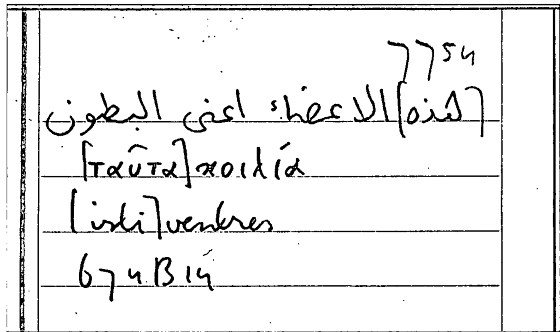 7754
[هذه] الاعضاء اعنى البطون
[ταῦτα] κοιλία
[isti] ventres
674B14